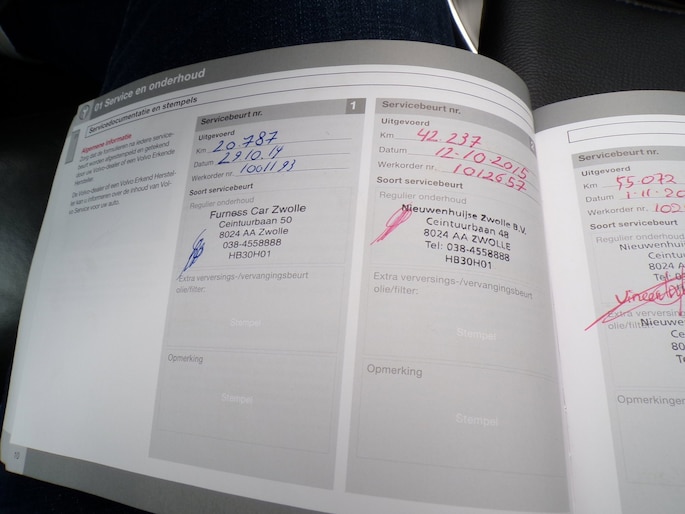 01 Service en onderhoud
Servicedocumentatie en stempels
Algemene informatie
Zorg dat de formulieren na iedere service-
beurt worden afgestempeld en getekend
door uw Volvo-dealer of een Volvo Erkende
Hersteller.
De Volvo-dealer of een Volvo Erkend Herstel-
ler kan u informeren over de inhoud van Vol-
vo Service voor uw auto.
10
Servicebeurt nr. 1
Uitgevoerd
Km 20.787
Datum 29.10.14
Werkorder nr. 1001193
Soort servicebeurt
Regulier onderhoud
Furness Car Zwolle
Ceintuurbaan 50
8024 AA ZWOLLE
038-4558888
HB30H01
Extra verversings-/vervangingsbeurt
olie/filter:
Stempel
Opmerking
Stempel
Servicebeurt nr. 2
Uitgevoerd
Km 42.237
Datum 12-10-2015
Werkorder nr. 1012657
Soort servicebeurt
Regulier onderhoud
Nieuwenhuijse Zwolle B.V.
Ceintuurbaan 48
8024 AA ZWOLLE
Tel: 038-4558888
HB30H01
Extra verversings-/vervangingsbeurt
olie/filter:
Stempel
Opmerking
Stempel
Servicebeurt nr.
Uitgevoerd
Km 55.072
Datum 1-11-20
Werkorder nr. 102
Soort servicebeurt
Regulier onderhoud
Nieuwenhui
Ceintu
8024 A
Tel: 0
Extra verversin
olie/filter:
Nieuwe
Ce
80
T
Opmerkingen